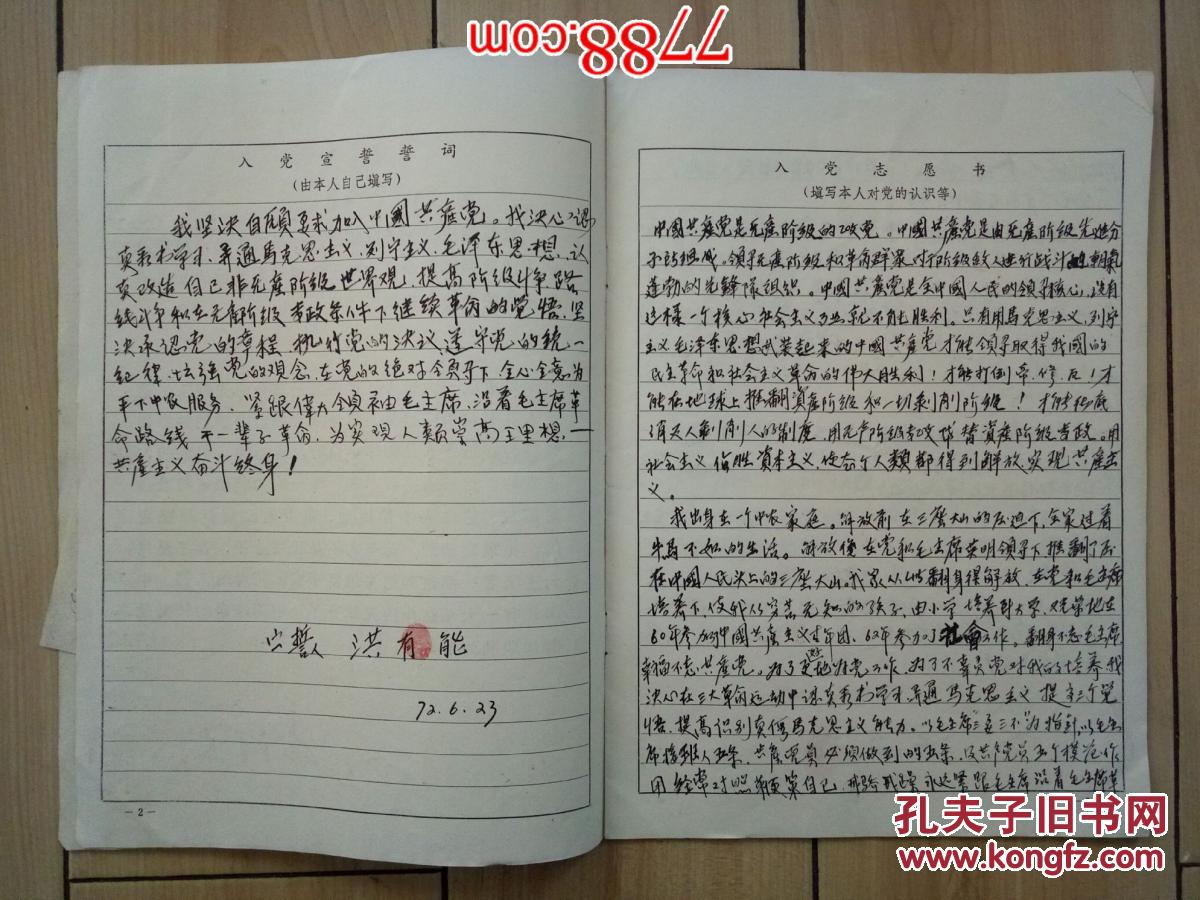 7788.com
入党宣誓誓词
(由本人自己填写)
我坚决自願要求加入中國共産党。我决心认
真系术学习、弄通馬克思主义、列宁主义、毛泽东思想、认
真改造自己非无産阶级世界观,提高阶级斗争路
线斗争和在无産阶级专政条件下继续革命的觉悟,坚
决承认党的章程、执行党的决议、遵守党的统一
纪律,加强党的观念,在党的绝对领导下,全心全意为
下中农服务,紧跟偉大領袖毛主席,沿着毛主席革
命路线干一辈子革命,为实现人類崇高理想,一
共産主义奋斗终身!
宣誓人 洪有能
72.6.23
—2—
入党志愿书
(填写本人对党的认识等)
中國共産党是无産阶级的政党。中國共産党是由无産阶级先进分
子所组成。領导无産阶级和革命群众对于阶级敌人进行战斗的朝氣
蓬勃的先鋒隊组织。中國共産党是全中國人民的領导核心,没有
这樣一个核心社会主义事业就不能胜利。只有用馬克思主义、列宁
主义毛泽东思想武装起来的中國共産党才能領导取得我國的
民主革命和社会主义革命的偉大胜利!才能打倒帝、修、反!才
能在地球上推翻資産阶级和一切剥削阶级!才能彻底
消灭人剥削人的制度,用无产阶级专政代替資産阶级专政。用
社会主义战胜資本主义,使全个人類都得到解放,实现共産主
义。
我出身在一个中农家庭。解放前在三座大山的压迫下,全家过着
牛馬不如的生活。解放後在党和毛主席英明領导下推翻了压
在中國人民头上的三座大山。我家从此翻身得解放,在党和毛主席
培养下,使我从穷苦无知的孩子,由小学培养到大学,光荣地在
60年参加中國共産主义青年团、62年参加了社會工作。翻身不忘毛主席,
幸福不忘共産党。为了更好地为党工作,为了不辜负党对我的培养我
决心在三大革命运动中认真系术学习弄通馬克思主义 提高三个觉
悟,提高识别真假馬克思主义能力。以毛主席"三要三不"为指針,以毛主
席接班人五条、共産党員必须做到的五条,及共产党员五个模范作
用 经常对照 自己 永远紧跟毛主席沿着毛主席革
孔夫子旧书网
www.kongfz.com